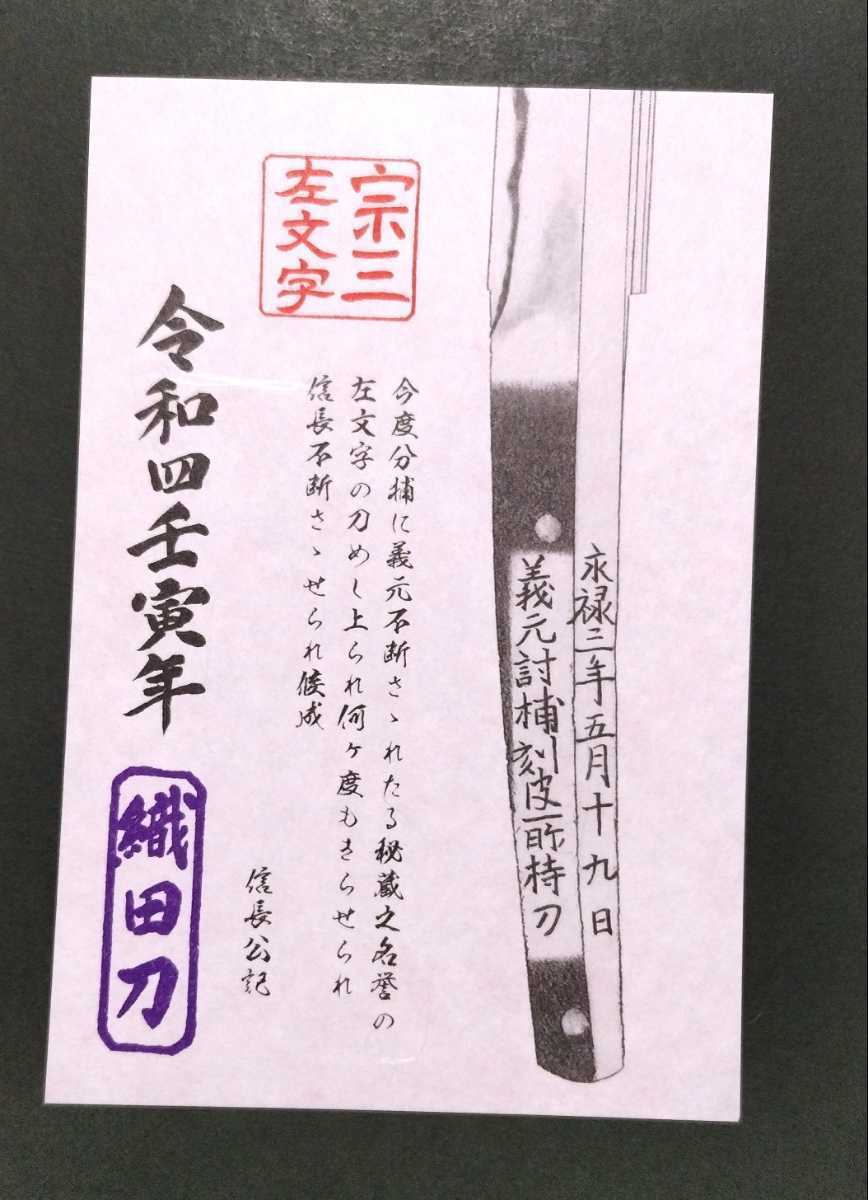 永禄三年五月十九日
義元討捕刻彼所持刀
宗三
左文字
今度分捕に義元不断さゝれたる秘蔵之名誉の
左文字の刀めし上られ何ヶ度もきらせられ
信長不断さゝせられ候成
信長公記
令和四壬寅年
織田刀